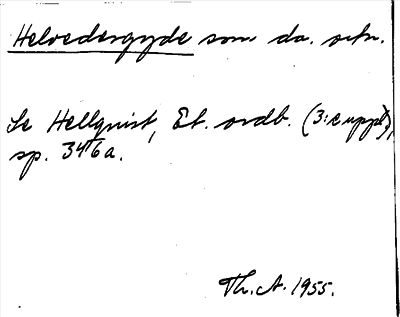 Helvedesgyde som da. ortn.
Se Hellquist, Et. ordb. (3:e uppl.),
sp. 346a.
Th. A. 1955.